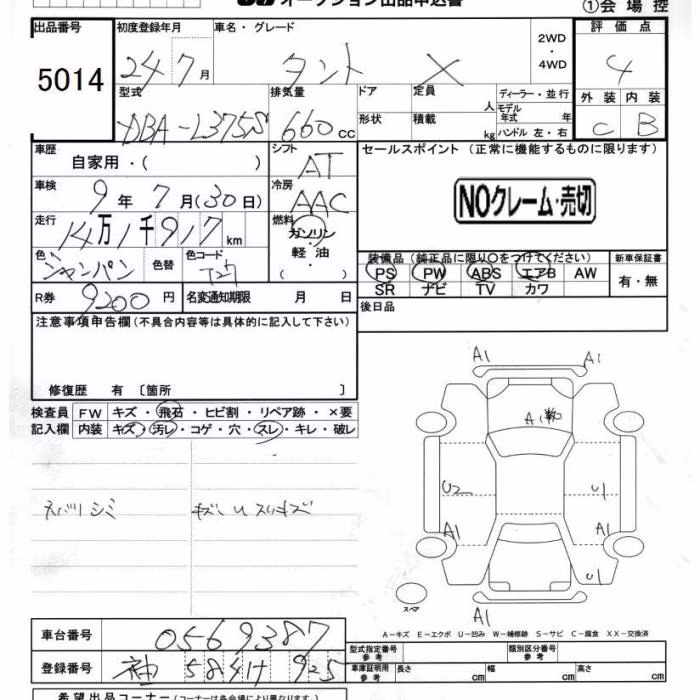 オークション出品申込書
①会場控
出品番号 初度登録年月 車名・グレード 評価点
5014 24 7月 タント X 2WD・4WD 4
型式 排気量 ドア 定員 人 ディーラー・並行 外装 内装
DBA-L375S 660cc 形状 積載 kg モデル年式 年 ハンドル 左・右 C B
車歴 自家用・( ) シフト AT セールスポイント (正常に機能するものに限ります)
車検 9年 7月(30日) 冷房 AAC NOクレーム・売切
走行 14万1千917km 燃料 ガソリン・軽油・( )
色 シャンパン 色替 色コード T27 装備品 (純正品に限り○をつけてください) 新車保証書
PS PW ABS エアB AW 有・無
SR ナビ TV カワ
R券 9200円 名変通知期限 月 日 後日品
注意事項申告欄 (不具合内容等は具体的に記入して下さい)
修復歴 有 [箇所 ]
検査員 FW キズ・飛石・ヒビ割・リペア跡・×要
記入欄 内装 キズ・汚レ・コゲ・穴・スレ・キレ・破レ
A1 A1
A1
U2 U1
ネバリ シミ キズ U スリキズ
A1 A1
U1
スペア A1
A-キズ E-エクボ U-凹み W-補修跡 S-サビ C-腐食 XX-交換済
車台番号 0569387
型式指定番号 参考 類別区分番号 参考
登録番号 584 925
車庫証明用 参考 長さ cm 幅 cm 高さ cm
希望出品コーナー (コーナーは各会場により異なります)